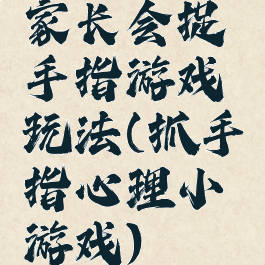 家长会捉
手指游戏
玩法(抓手
指心理小
游戏)